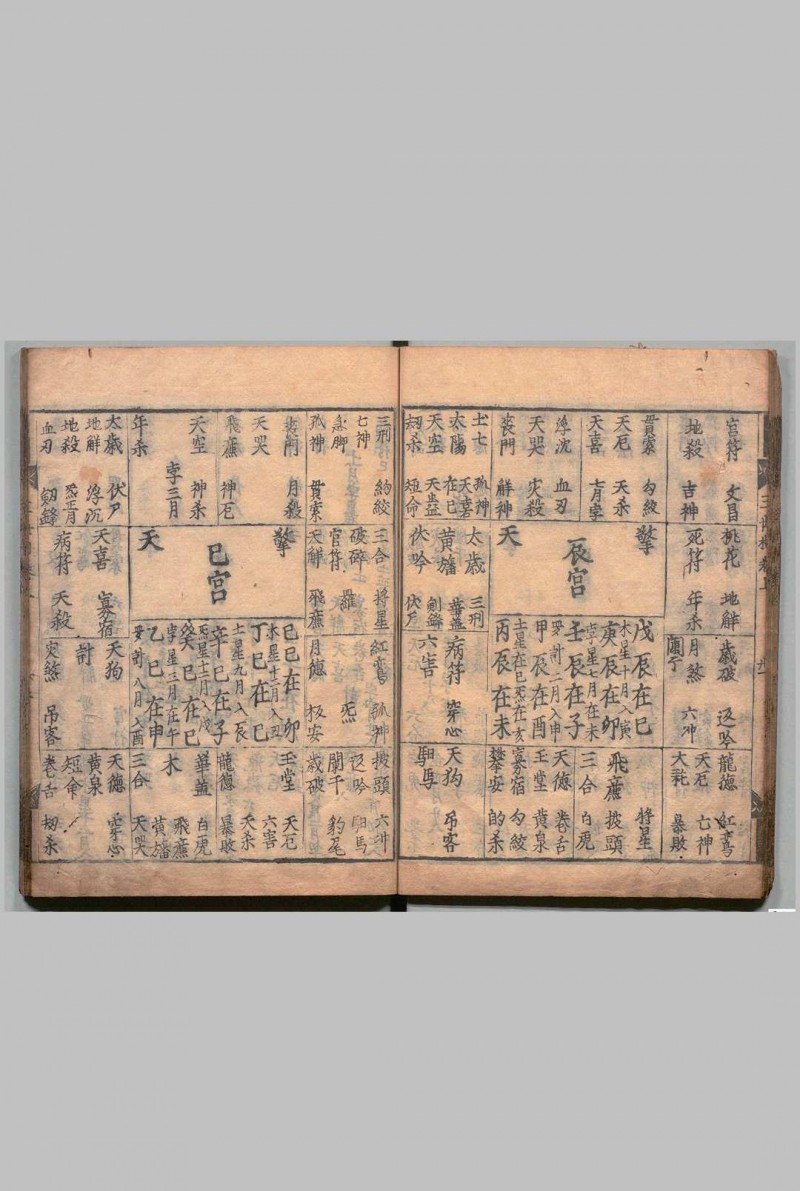 官符 文昌
地殺 吉神
貫索 勾絞
天厄 天杀
天喜
浮沉 血刃
天哭 灾殺
喪門 觧神
土七 孤神
太陽 天喜
在巳
天空 天蠱
刼杀 短命
桃花 地觧
死符 年杀
擎
辰宫
天
太歲 三刑
黄旛 華盖
伏吟 伏尸
劍鋒
歲破 返吟
月煞 六冲
闌干
戊辰在巳
木星十月入寅
庚辰在卯
孛星七月在未
壬辰在子
甲辰在酉
土星在巳炁在亥
丙辰在未
病符 穿心
六害
龍德 紅鸞
天厄 亡神
大耗 暴敗
將星
飛廉 披頭
三合 白虎
天德 卷舌
玉堂 黄泉
寡宿 勾絞
攀安 的杀
天狗 吊客
馹馬
三刑 絢絞
七神
急脚
孤神 貫索
喪門 月殺
天哭
飛廉 神厄
天空 神杀
孛三月
年杀
太歲 伏尸
地觧 浮沉
地殺
血刃 劍鋒
三合 將星
破碎 羅
官符
天觧 飛廉
擎
巳宫
天
天喜 寡宿
病符 天殺
紅鸞 孤神
炁
月德 扳安
己巳在卯
木星十二月入丑
丁巳在巳
土星九月入辰
辛巳在子
炁星十二月入戌
癸巳在巳
孛星三月在午
乙巳在申
天狗
計
灾煞 吊客
披頭 六冲
返吟 馹馬
闌干 豹尾
歲破
玉堂 天厄
六害
天杀
龍德 暴敗
華盖 白虎
木 飛廉
黄旛
三合 天哭
天德 穿心
黄泉
短命
卷舌 刼杀